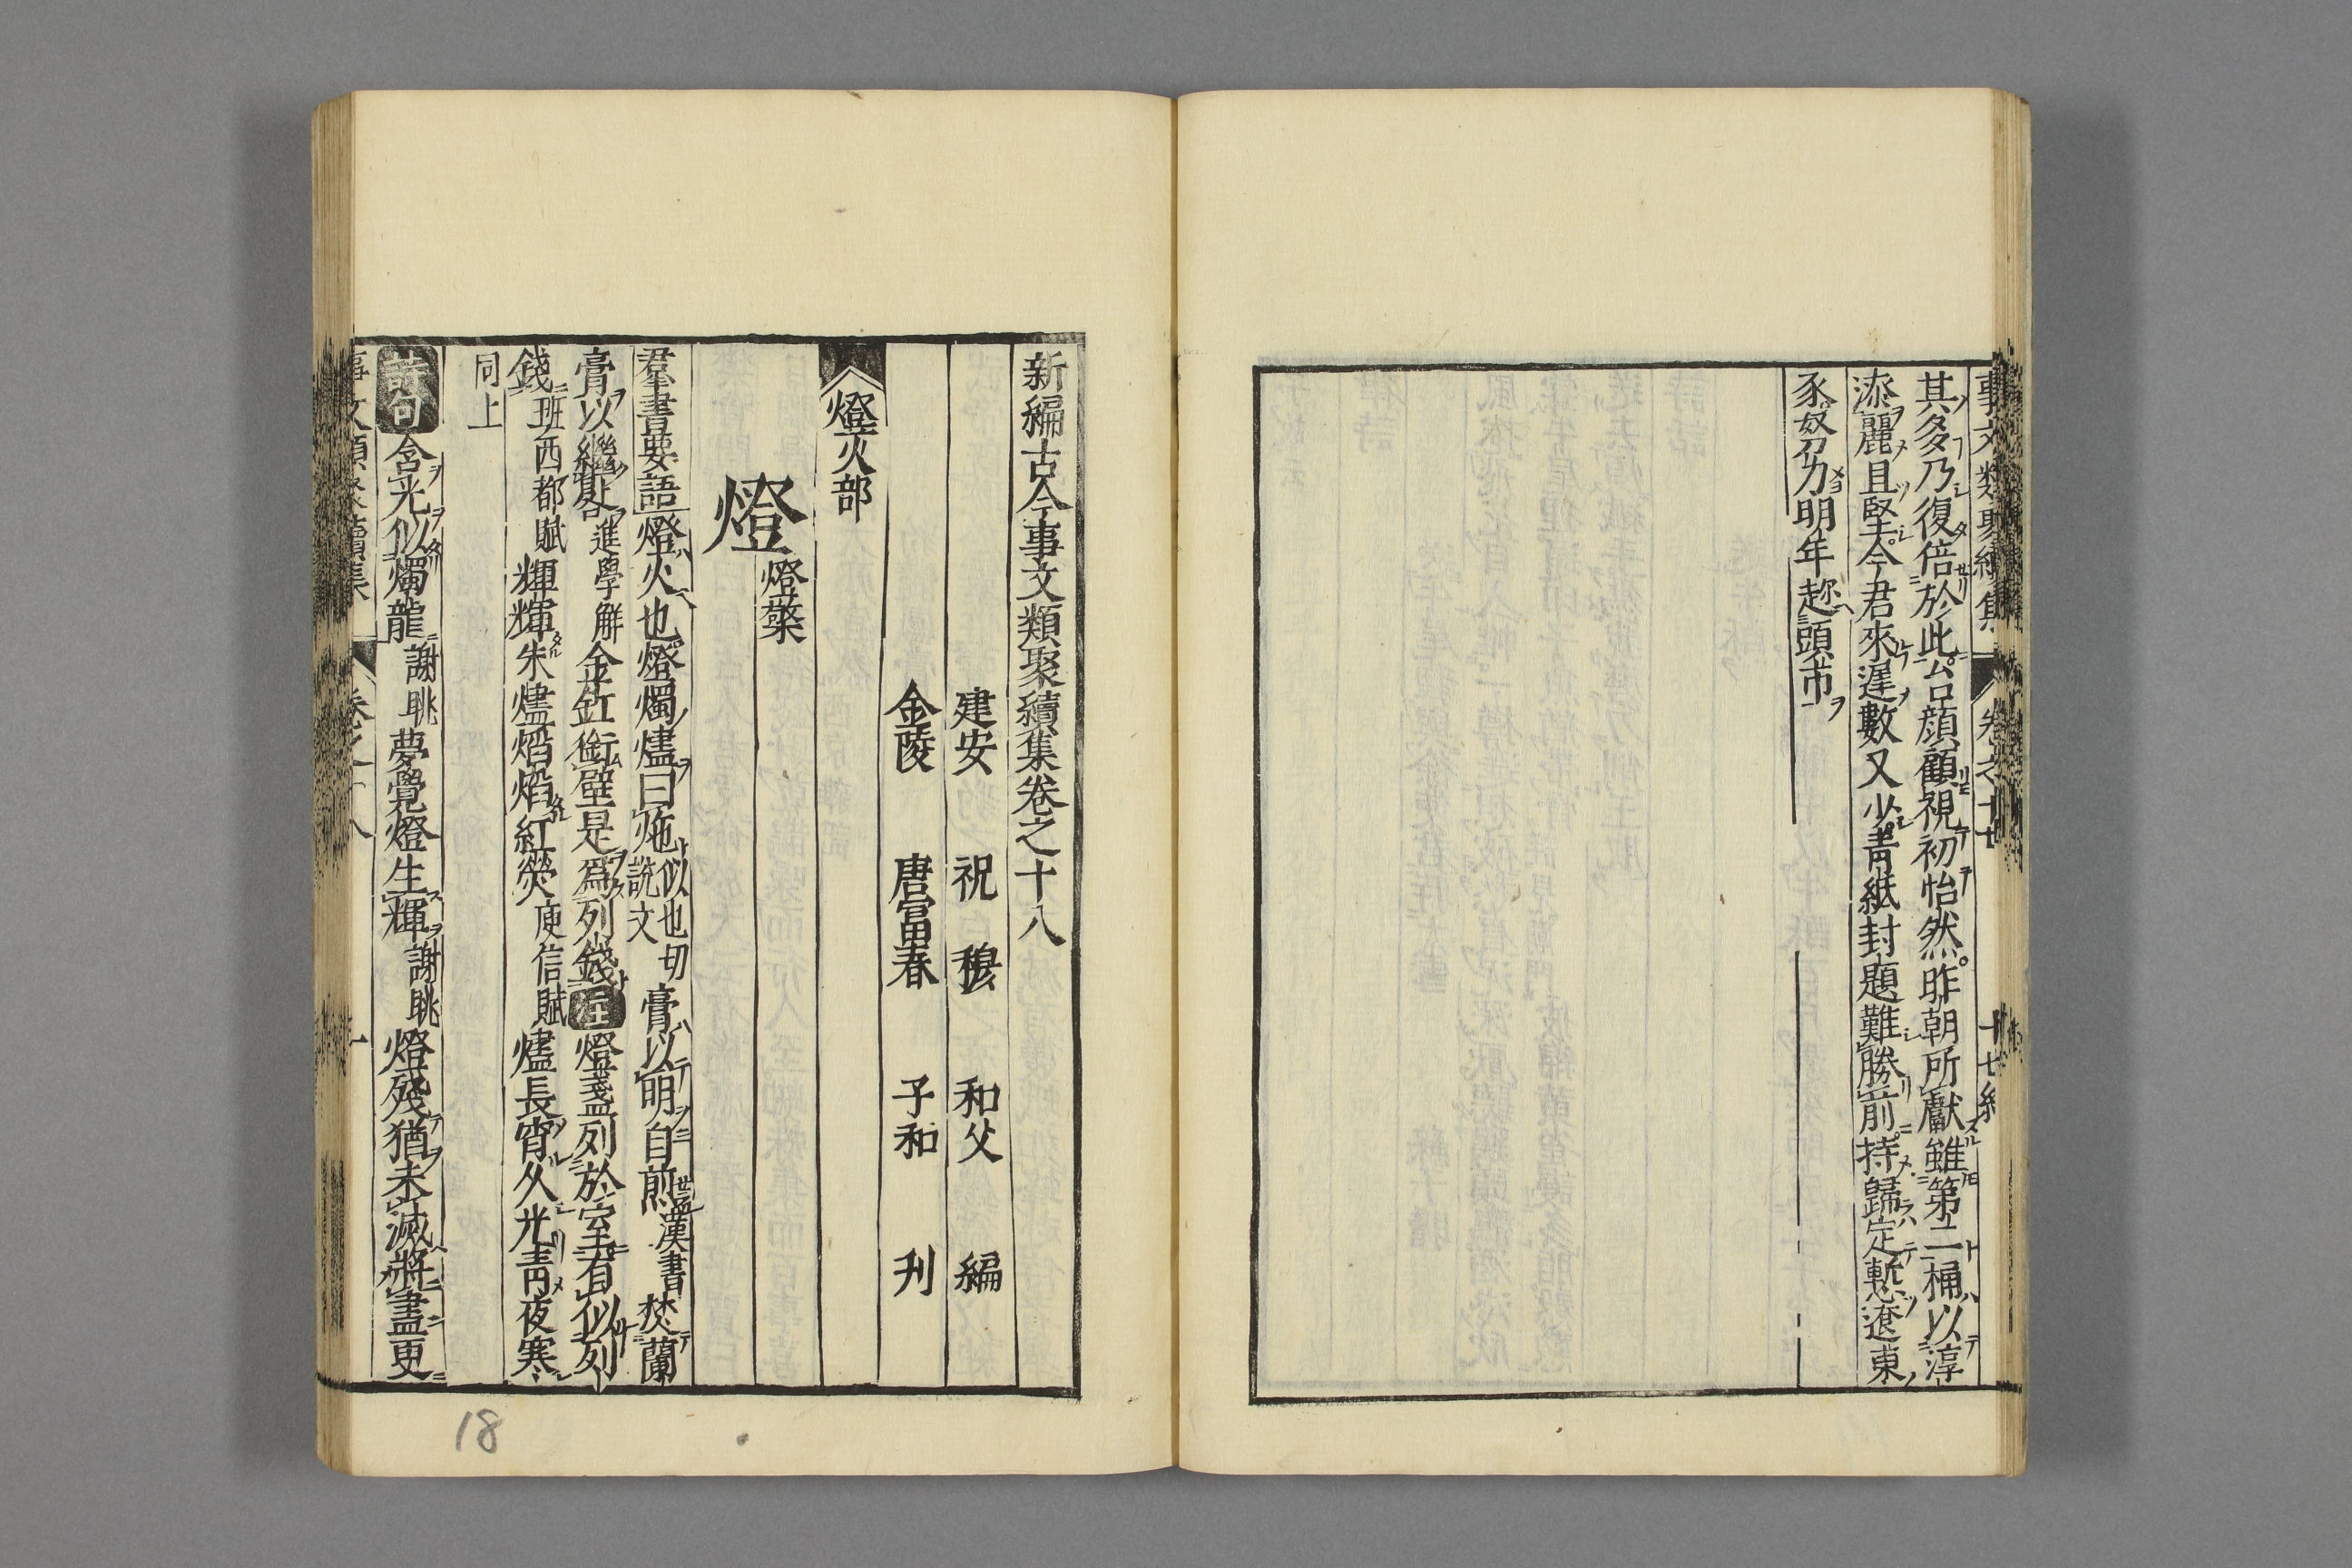 其多乃復倍於此公顔顧視初怡然昨朝所獻雖第二桶以淳
漆麗且堅今君來遲數又少靑紙封題難勝前持歸定慙遼東
豕奴刕明年趂頭市
新編古今事文類聚續集卷之十八
建安 祝 穆 和父 編
金陵 唐富春 子和 刊
燈火部
燈 燈檠
羣書要語燈火也燈燭燼曰炧似也切說文膏以明自煎漢書焚蘭
膏以繼晷進學解金釭銜壁是爲列錢注燈盞列於室有似列
錢班西都賦輝輝朱燼焰焰紅熒庾信賦燼長宵久光靑夜寒
同上
詩句含光似燭龍謝眺夢覺燈生輝謝眺燈殘猶未滅將盡更
18